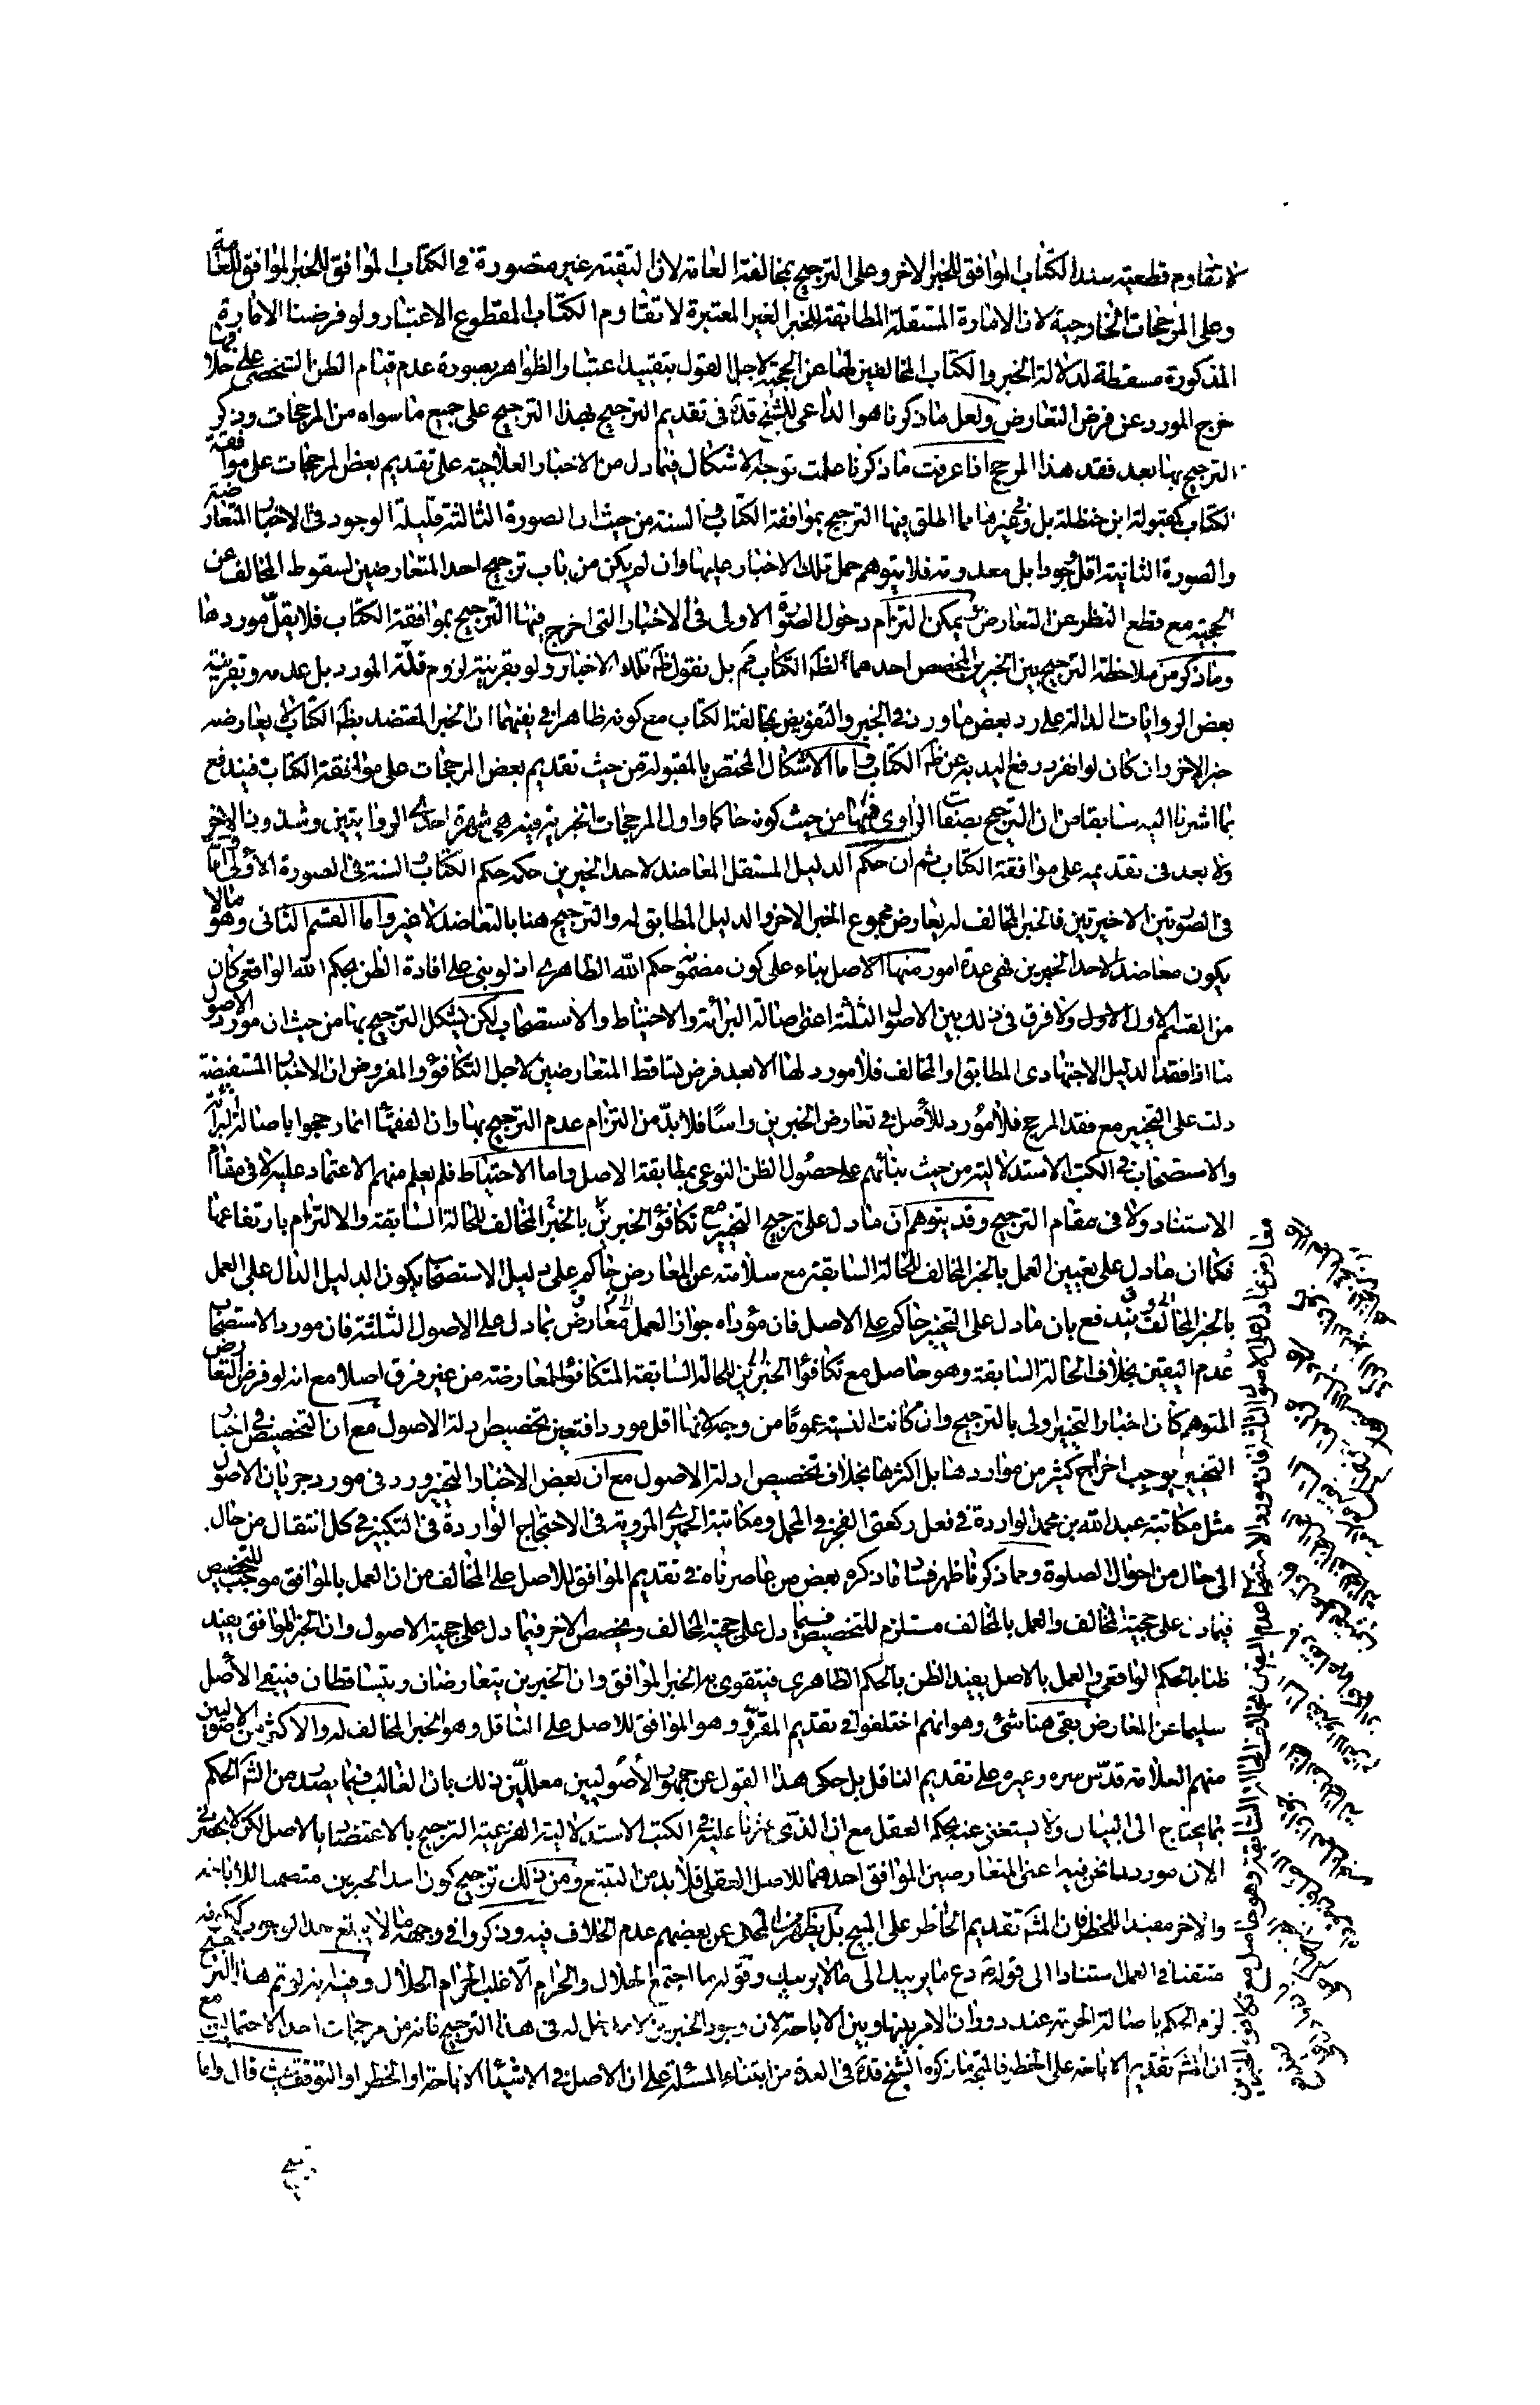 لا تقاوم قطعية سند الكتاب الموافق للخبر الاخر وعلى الترجيح بمخالفة العامة لان التقية غير متصورة في الكتاب الموافق للخبر الموافق للعامة
وعلى المرجحات الخارجية لان الامارة المستقلة المطابقة للخبر الغير المعتبرة لا تقاوم الكتاب المقطوع الاعتبار ولو فرضنا الامارة
المذكورة مسقطة لدلالة الخبر والكتاب المخالفين لها عن الحجية لاجل القول بتقييد اعتبار الظواهر بصورة عدم قيام الظن الشخصي على خلافها
خرج المورد عن فرض التعارض ولعل ما ذكرنا هو الداعي للشيخ قده في تقديم الترجيح بهذا الترجيح على جميع ما سواه من المرجحات وذكر
الترجيح بها بعد فقد هذا المرجح اذا عرفت ما ذكرنا علمت توجه الاشكال فيما دل من الاخبار العلاجية على تقديم بعض المرجحات على موافقة
الكتاب كمقبولة ابن حنظلة بل وفي غيرها مما اطلق فيها الترجيح بموافقة الكتاب والسنة من حيث ان الصورة الثالثة قليلة الوجود في الاخبار المتعارضة
والصورة الثانية اقل وجودا بل معدومة فلا يتوهم حمل تلك الاخبار عليها وان لم يكن من باب ترجيح احد المتعارضين لسقوط المخالف عن
الحجية مع قطع النظر عن التعارض ويمكن التزام دخول الصورة الاولى في الاخبار التي اخرج فيها الترجيح بموافقة الكتاب فلا يقل موردها
وما ذكر من ملاحظة الترجيح بين الخبرين المخصص احدهما لظ الكتاب مم بل نقول ظ تلك الاخبار ولو بقرينة لزوم قلة المورد بل عدمه وبقرينة
بعض الروايات الدالة على رد بعض ما ورد في الجبر والتفويض بمخالفة الكتاب مع كونه ظاهرا في نفيهما ان الخبر المعتضد بظ الكتاب لا يعارضه
خبر الاخر وان كان لو انفرد رفع اليد به عن ظ الكتاب واما الاشكال المختص بالمقبولة من حيث تقديم بعض المرجحات على موافقة الكتاب فيندفع
بما اشرنا اليه سابقا من ان الترجيح بصفات الراوي فيها من حيث كونه حاكما واول المرجحات الخبرية فيه هي شهرة احدى الروايتين وشذوذ الاخرى
ولا بعد في تقديمه على موافقة الكتاب ثم ان حكم الدليل المستقل المعاضد لاحد الخبرين حكمه حكم الكتاب والسنة في الصورة الاولى واما
في الصورتين الاخيرتين فالخبر المخالف له يعارض مجموع الخبر الاخر والدليل المطابق له والترجيح هنا بالتعاضد لا غير واما القسم الثاني وهو ما لا
يكون معاضدا لاحد الخبرين فهي عدة امور منها الاصل بناء على كون مضمونه حكم الله الظاهري اذ لو بني على افادة الظن بحكم الله الواقعي كان
من القسم الاول ولا فرق في ذلك بين الاصول الثلثة اعني اصالة البرائة والاحتياط والاستصحاب لكن يشكل الترجيح بها من حيث ان مورد الاصول
ما اذا فقد الدليل الاجتهادي المطابق او المخالف فلا مورد لها الا بعد فرض تساقط المتعارضين لاجل التكافؤ والمفروض ان الاخبار المستفيضة
دلت على التخيير مع فقد المرجح فلا مورد للاصل في تعارض الخبرين راسا فلا بد من التزام عدم الترجيح بها وان الفقهاء انما رجحوا باصالة البرائة
والاستصحاب في الكتب الاستدلالية من حيث بنائهم على حصول الظن النوعي بمطابقة الاصل واما الاحتياط فلم يعلم منهم الاعتماد عليه لا في مقام
الاستناد ولا في مقام الترجيح وقد يتوهم ان ما دل على ترجيح التخيير مع تكافؤ الخبرين بالخبر المخالف للحالة السابقة والالتزام بارتفاعها
فكما ان ما دل على تعيين العمل بالخبر المخالف للحالة السابقة مع سلامته عن المعارض حاكم على دليل الاستصحاب يكون الدليل الدال على العمل
بالخبر المخالف ويندفع بان ما دل على التخيير حاكم على الاصل فان مؤداه جواز العمل معارض بما دل على الاصول الثلثة فان مورد الاستصحاب
عدم اليقين بخلاف الحالة السابقة وهو حاصل مع تكافؤ الخبرين للحالة السابقة المتكافؤ لمعارضه من غير فرق اصلا مع انه لو فرض التعارض
المتوهم كان اخبار التخيير اولى بالترجيح وان كانت النسبة عموما من وجه لانها اقل موردا فتعين تخصيص ادلة الاصول مع ان التخصيص في اخبار
التخيير يوجب اخراج كثير من مواردها بل اكثرها بخلاف تخصيص ادلة الاصول مع ان بعض الاخبار التخيير ورد في مورد جريان الاصول
مثل مكاتبة عبد الله بن محمد الواردة في فعل ركعتي الفجر في المحمل ومكاتبة الحميري المروية في الاحتجاج الواردة في التكبير في كل انتقال من حال
الى حال من احوال الصلوة ومما ذكرنا ظهر فساد ما ذكره بعض من عاصرناه في تقديم الموافق للاصل على المخالف من ان العمل بالموافق موجب للتخصيص
فيما دل على حجية المخالف والعمل بالمخالف مستلزم للتخصيص فيما دل على حجية المخالف وتخصيص الاخر فيما دل على حجية الاصول وان الخبر الموافق يفيد
ظنا بالحكم الواقعي والعمل بالاصل يفيد الظن بالحكم الظاهري فيتقوى به الخبر الموافق وان الخبرين يتعارضان ويتساقطان فيبقى الاصل
سليما عن المعارض بقي هنا شئ وهو انهم اختلفوا في تقديم المقرر وهو الموافق للاصل على الناقل وهو الخبر المخالف له والاكثر من الاصوليين
منهم العلامة قدس سره وغيره على تقديم الناقل بل حكي هذا القول عن جمهور الاصوليين معللين ذلك بان الغالب فيما يصدر من الش الحكم
بما يحتاج الى البيان ولا يستغنى عنه بحكم العقل مع ان الذي عثرنا عليه في الكتب الاستدلالية الفرعية الترجيح بالاعتضاد بالاصل لكن لا يحضرني
الان مورد لما نحن فيه اعني المتعارضين الموافق احدهما للاصل العقلي فلا بد من التتبع ومن ذلك ترجيح كون احد الخبرين متضمنا للاباحة
والاخر مفيدا للحظر فان المش تقديم الحاظر على المبيح بل يظهر من المحكي عن بعضهم عدم الخلاف فيه وذكروا في وجهه ما لا
متيقنا في العمل استنادا الى قوله ع دع ما يريبك الى ما لا يريبك وقوله ما اجتمع الحلال والحرام الا غلب الحرام الحلال وفيه انه لو تم هذا الترجيح
لزم الحكم باصالة الحرمة عند دوران الامر بينها وبين الاباحة لان وجود الخبرين لا مدخل له في هذا الترجيح فانه من مرجحات احد الاحتمالين مع
ان المش تقديم الاباحة على الحظر فالمتجه ما ذكره الشيخ قده في العدة من ابتناء المسئلة على ان الاصل في الاشياء الاباحة او الحظر او التوقف حيث قال واما
معارض بما دل على الاصول الثلثة فان مورد الاستصحاب عدم اليقين بخلاف الحالة السابقة وهو حاصل مع تكافؤ الخبرين